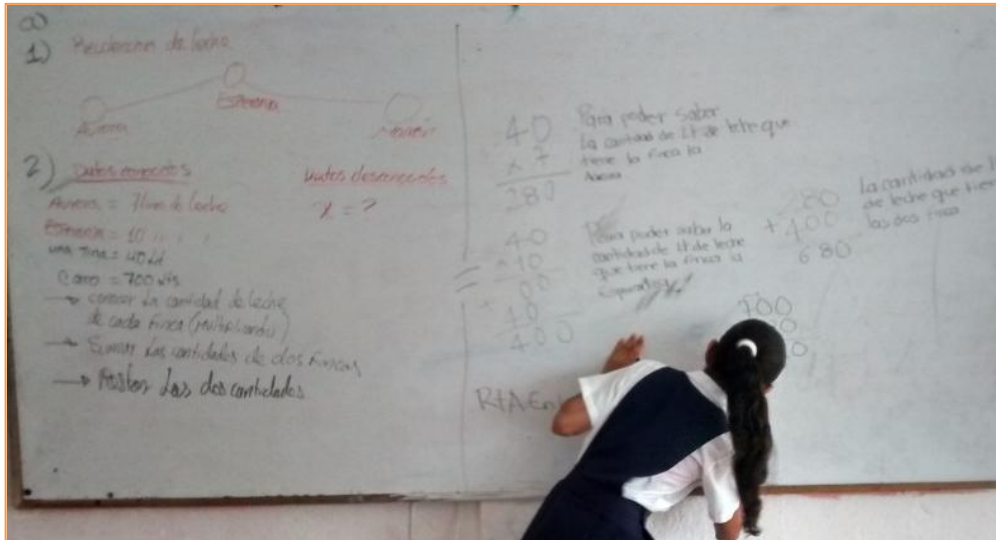 a)
1) de leche
Esperanza
Aurora
2) Datos conocidos
Datos desconocidos
Aurora = 7 de leche
X = ?
Esperanza = 10
una Tina = 40
Carro = 700 Lts
→ conocer la cantidad de leche
de cada finca (multiplicando)
→ Sumar las cantidades de dos fincas
→ Restar las dos cantidades
40
x 7
280
Para poder saber
la cantidad de Lt de leche que
tiene la finca la
Aurora
40
10
00
+ 40
400
Para poder saber la
cantidad de Lt de leche
que tiene la finca la
280
+ 400
680
La cantidad de
de leche que
las dos finca
700
RTA